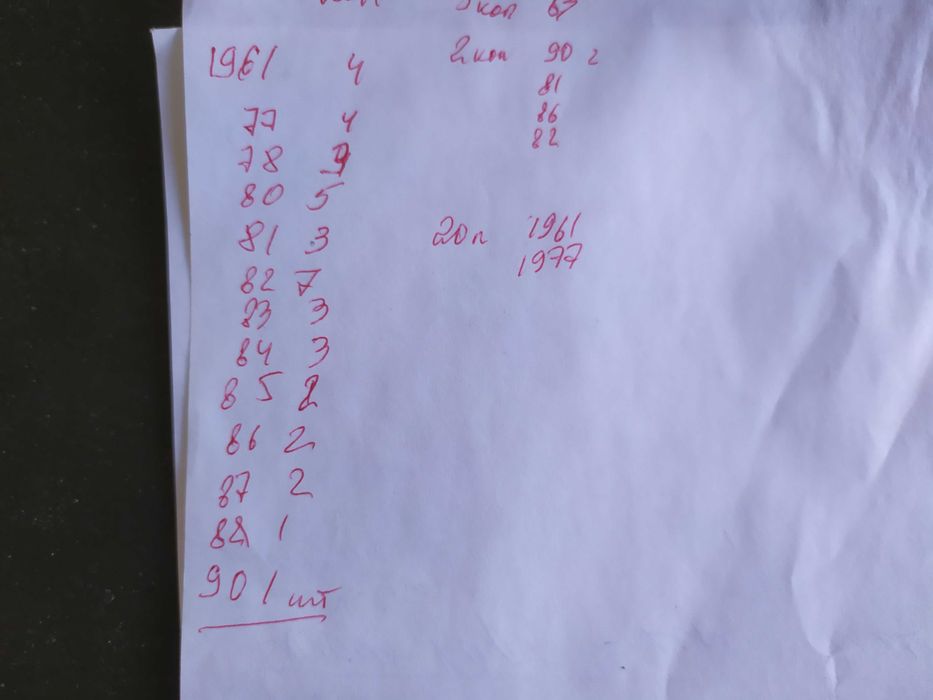 коп 67
1961 4
77 4
78 9
80 5
81 3
82 7
83 3
84 3
85 2
86 2
87 2
88 1
90 1 шт
2 коп 90 г
81
86
82
20 п 1961
1977